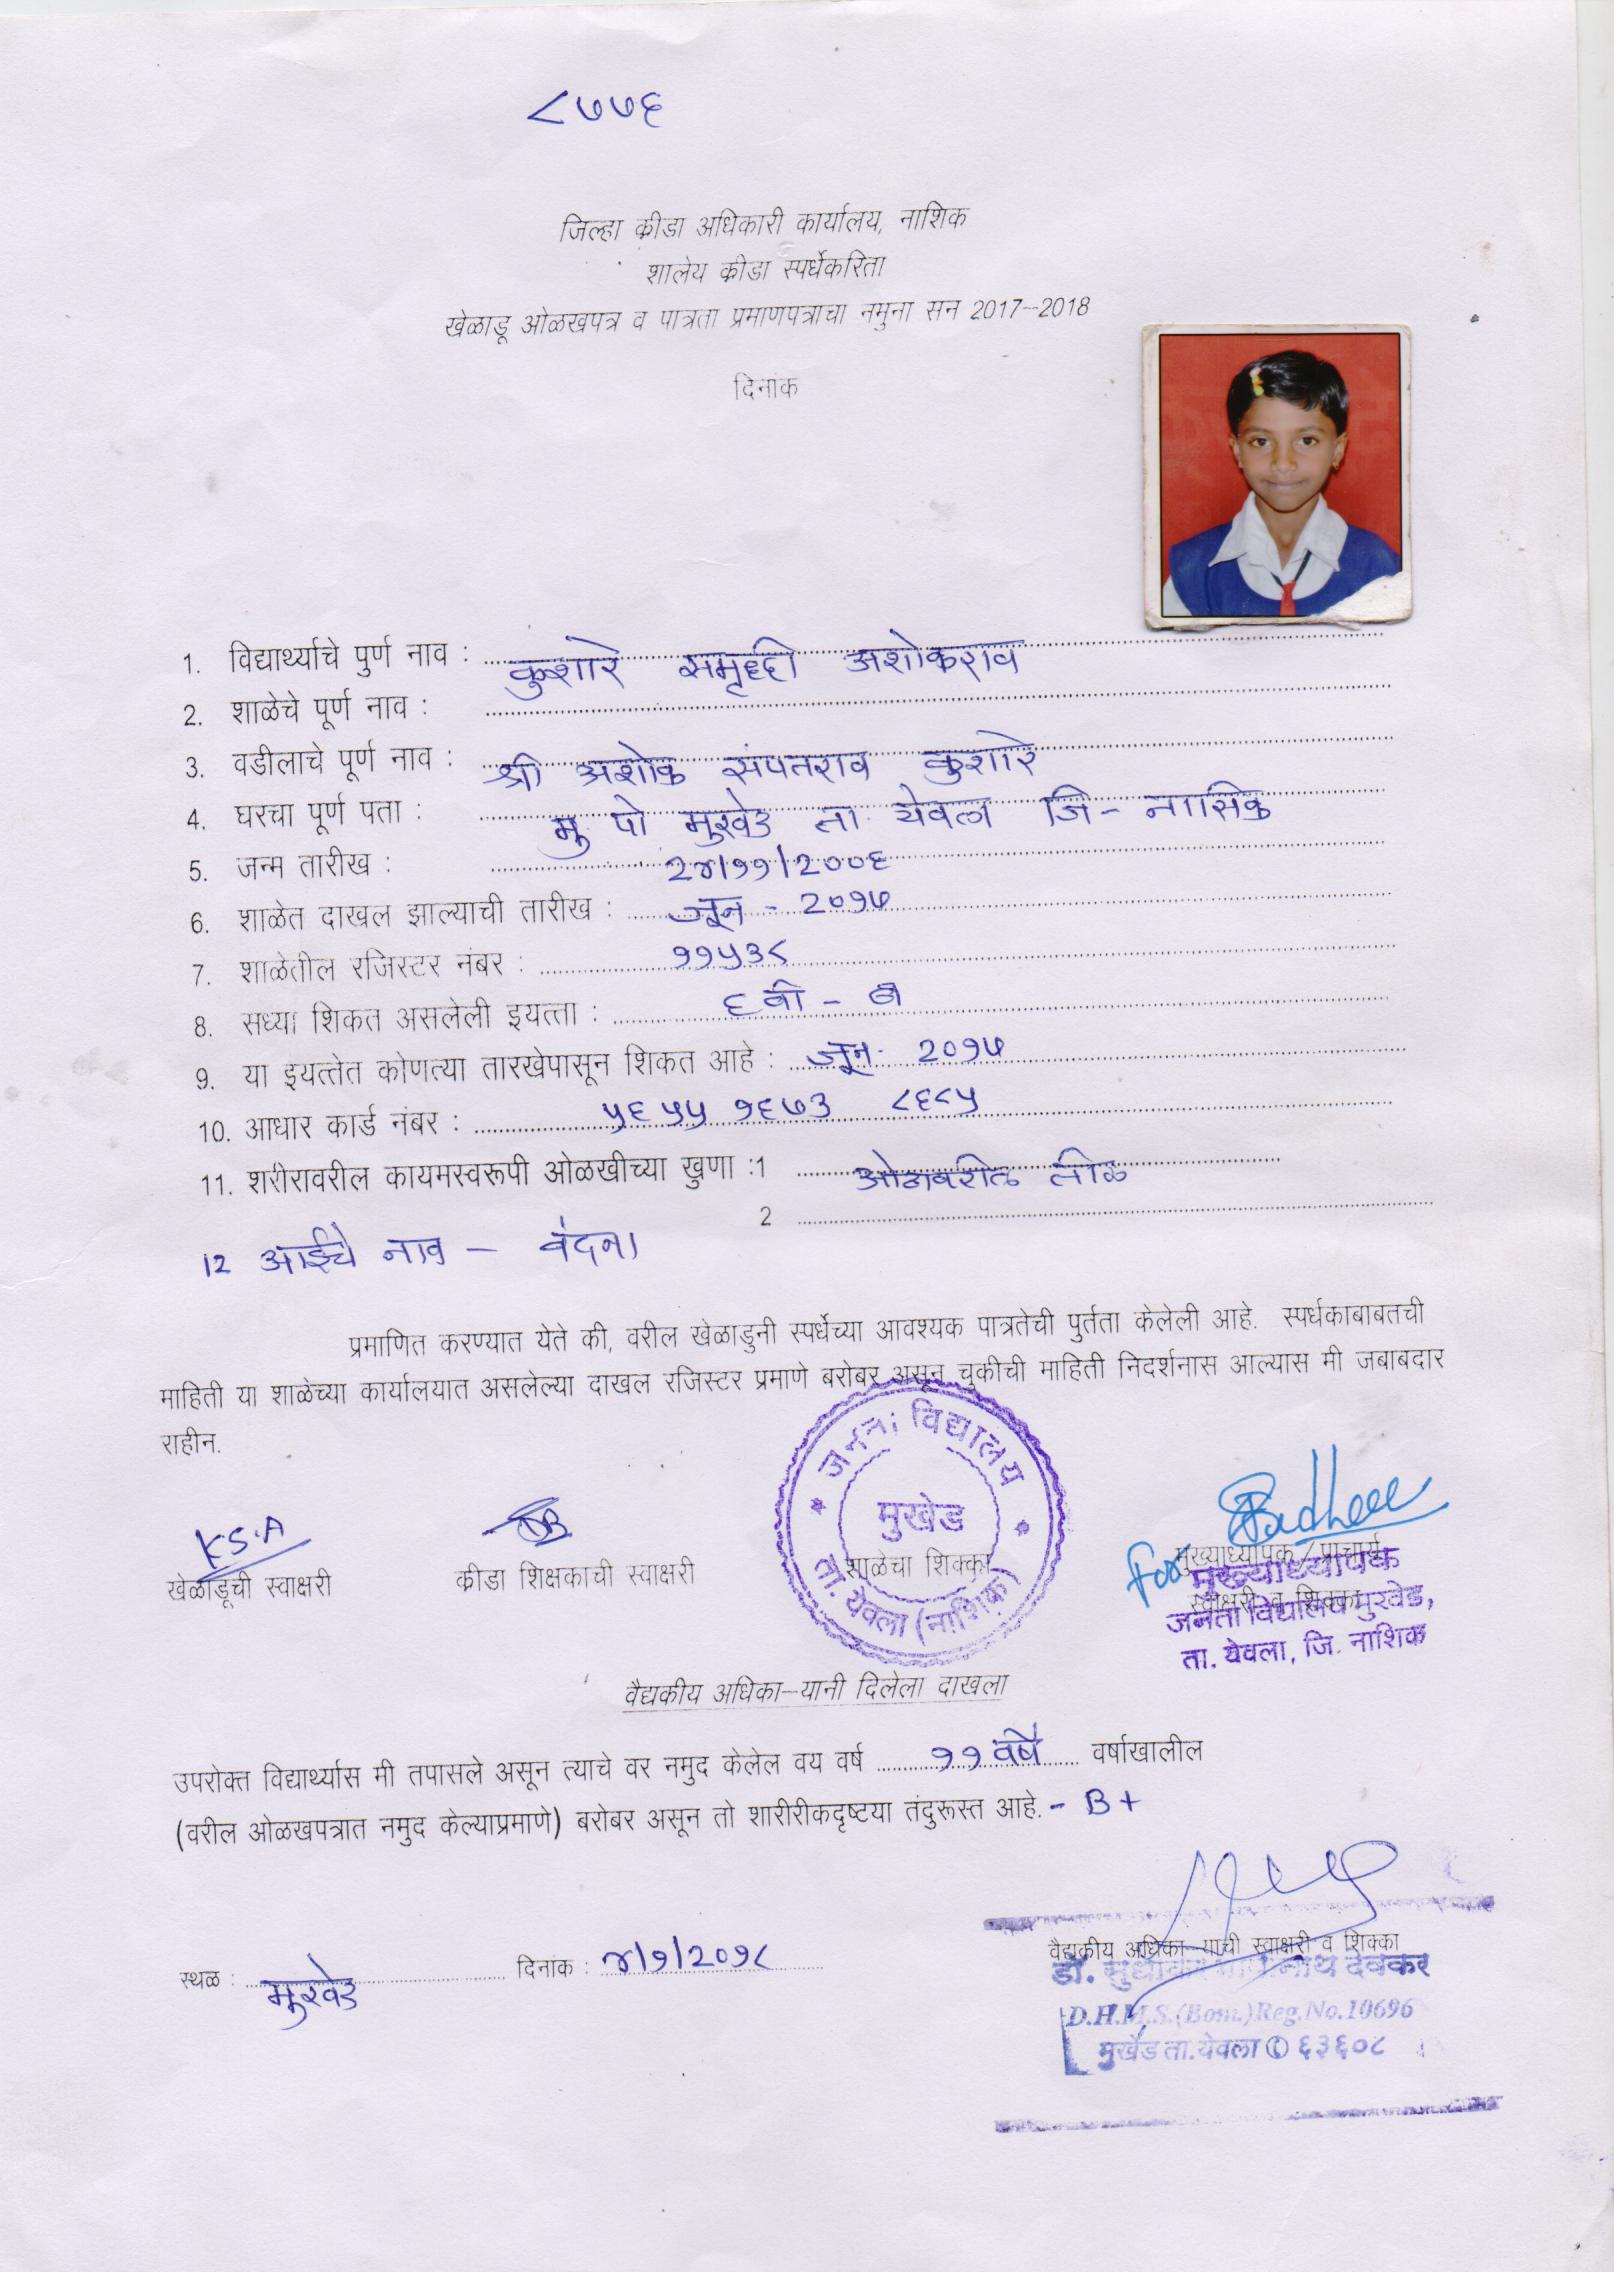 ८७७६
जिल्हा क्रीडा अधिकारी कार्यालय, नाशिक
शालेय क्रीडा स्पर्धेकरिता
खेळाडू ओळखपत्र व पात्रता प्रमाणपत्राचा नमुना सन 2017–2018
दिनांक
1. विद्यार्थ्याचे पुर्ण नाव : कुशारे समृध्दी अशोकराव
2. शाळेचे पूर्ण नाव :
3. वडीलाचे पूर्ण नाव : श्री अशोक संपतराव कुशारे
4. घरचा पूर्ण पता : मु. पो मुखेड ता. येवला जि - नासिक
5. जन्म तारीख : २४/११/२००६
6. शाळेत दाखल झाल्याची तारीख : जून - २०१७
7. शाळेतील रजिस्टर नंबर : ११५३८
8. सध्या शिकत असलेली इयत्ता : ६ वी - ब
9. या इयत्तेत कोणत्या तारखेपासून शिकत आहे : जून - २०१७
10. आधार कार्ड नंबर : ५६५५ १६७३ ८६८५
11. शरीरावरील कायमस्वरूपी ओळखीच्या खुणा :1 ओठावरील तीळ
2
12 आईचे नाव - वंदना
प्रमाणित करण्यात येते की, वरील खेळाडुनी स्पर्धेच्या आवश्यक पात्रतेची पुर्तता केलेली आहे. स्पर्धकाबाबतची
माहिती या शाळेच्या कार्यालयात असलेल्या दाखल रजिस्टर प्रमाणे बरोबर असून चुकीची माहिती निदर्शनास आल्यास मी जबाबदार
राहीन.
जनता विद्यालय
मुखेड
ता. येवला (नाशिक)
K.S.A
For
खेळाडूची स्वाक्षरी क्रीडा शिक्षकाची स्वाक्षरी शाळेचा शिक्का मुख्याध्यापक / प्राचार्य
स्वाक्षरी व शिक्का
मुख्याध्यापक
जनता विद्यालय मुखेड,
ता. येवला, जि. नाशिक
वैद्यकीय अधिका–यानी दिलेला दाखला
उपरोक्त विद्यार्थ्यास मी तपासले असून त्याचे वर नमुद केलेल वय वर्ष ११ वर्षे वर्षाखालील
(वरील ओळखपत्रात नमुद केल्याप्रमाणे) बरोबर असून तो शारीरीकदृष्टया तंदुरूस्त आहे. - B +
स्थळ : मुखेड दिनांक : ४/१/२०१८
वैद्यकीय अधिका–याची स्वाक्षरी व शिक्का
डॉ. सुधाकर देवकर
D.H.M.S.(Bom.)Reg.No.10696
मुखेड ता.येवला ✆ ६३६०८